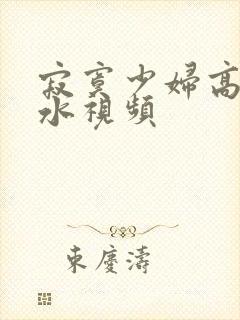 寂寞少婦高
水視頻
東慶濤